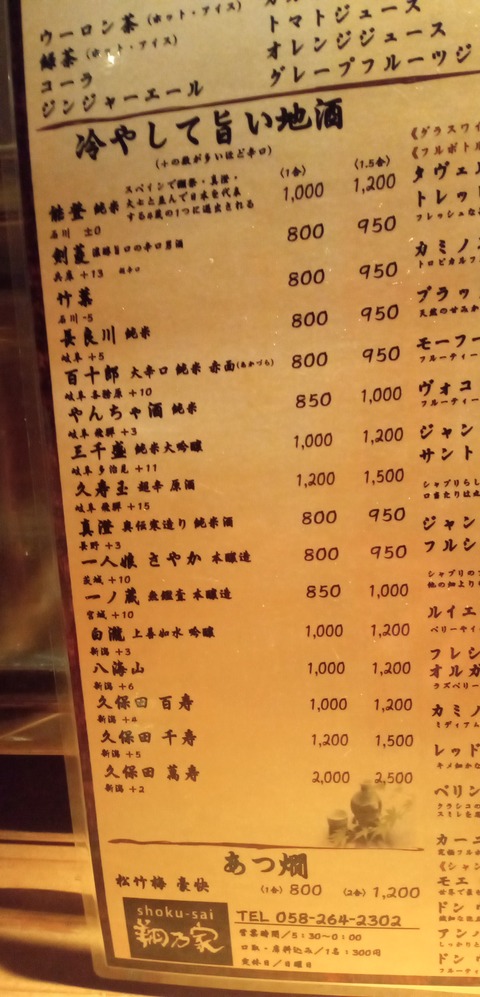 ウーロン茶 (ホット・アイス)
緑茶 (ホット・アイス)
コーラ
ジンジャーエール
トマトジュース
オレンジジュース
グレープフルーツジ
冷やして旨い地酒
(+の数が多いほど辛口)
(1合) (1.5合)
能登 純米 スペインで獺祭・真澄・
大七と並んで日本を代表
する6蔵の1つに選出される
1,000 1,200
石川 ±0
剣菱 濃醇旨口の辛口男酒 800 950
兵庫 +13 超辛口
竹葉 800 950
石川 -5
長良川 純米 800 950
岐阜 +5
百十郎 大辛口 純米 赤面(あかづら) 800 950
岐阜 各務原 +10
やんちゃ酒 純米 850 1,000
岐阜 飛騨 +3
三千盛 純米大吟醸 1,000 1,200
岐阜 多治見 +11
久寿玉 超辛 原酒 1,200 1,500
岐阜 飛騨 +15
真澄 奥伝寒造り 純米酒 800 950
長野 +3
一人娘 さやか 本醸造 800 950
茨城 +10
一ノ蔵 無鑑査 本醸造 850 1,000
宮城 +10
白瀧 上善如水 吟醸 1,000 1,200
新潟 +3
八海山 1,000 1,200
新潟 +6
久保田 百寿 1,000 1,200
新潟 +4
久保田 千寿 1,200 1,500
新潟 +5
久保田 萬寿 2,000 2,500
新潟 +2
あつ燗
松竹梅 豪快 (1合) 800 (2合) 1,200
shoku-sai
乃家
TEL 058-264-2302
営業時間/5:30~0:00
口取・席料込み/1名:300円
定休日/日曜日
《グラスワイ
《フルボトル
タヴェル
トレッ
フレッシュな
カミノ
トロピカルフ
ブラッ
天然の甘みか
モーフ
フルーティー
ヴォコ
フルーティー
ジャン
サント
シャブリらし
口当たりは
ジャン
フルシ
シャブリの
他の畑より
ルイエ
ベリーやイ
フレシ
オルガ
ラズベリー
カミノ
ミディアム
レッド
キメ細かな
ペリン
クラシコの
スミレを
カーニ
完熟フル
《シャン
モエ
世界で最
ドン
アン
しっかりと
ドン
フルーティ